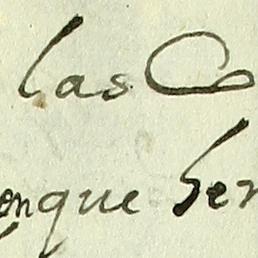 las
enque ser